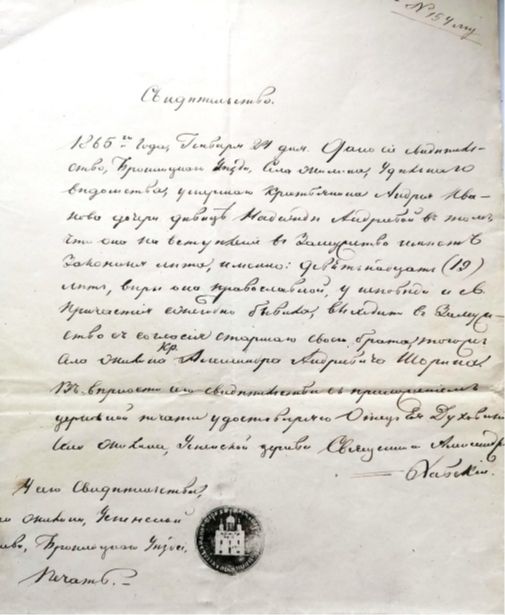 № 154
Свидѣтельство.
1865 го года, Генваря 24 дня. Дано сіе свидѣтель-
ство, Бронницкаго Уѣзда, Села Жилина, Удѣльнаго
вѣдомства, умершаго Крестьянина Андрея Ива-
нова дочери дѣвицѣ Надеждѣ Андреевой въ томъ,
что она на вступленіе въ Замужство имѣетъ
Законныя лѣта, именно: девятьнадцать (19)
лѣтъ, вѣры она православной, у исповѣди и Св.
Причастія ежегодно бывала, выходитъ въ Замуж-
ство съ согласія старшаго своего брата, тогожъ
Села Жилина Кр. Александра Андреевича Шорина.
Въ вѣрности сего свидѣтельства съ приложеніемъ
церковной печати удостовѣряю Отецъ Ея Духовный
Села Жилина, Успенской церкви Священникъ Александръ
Къ сему Свидѣтельству,
Села Жилина, Успенской
церкви, Бронницкаго Уѣзда,
Печать.